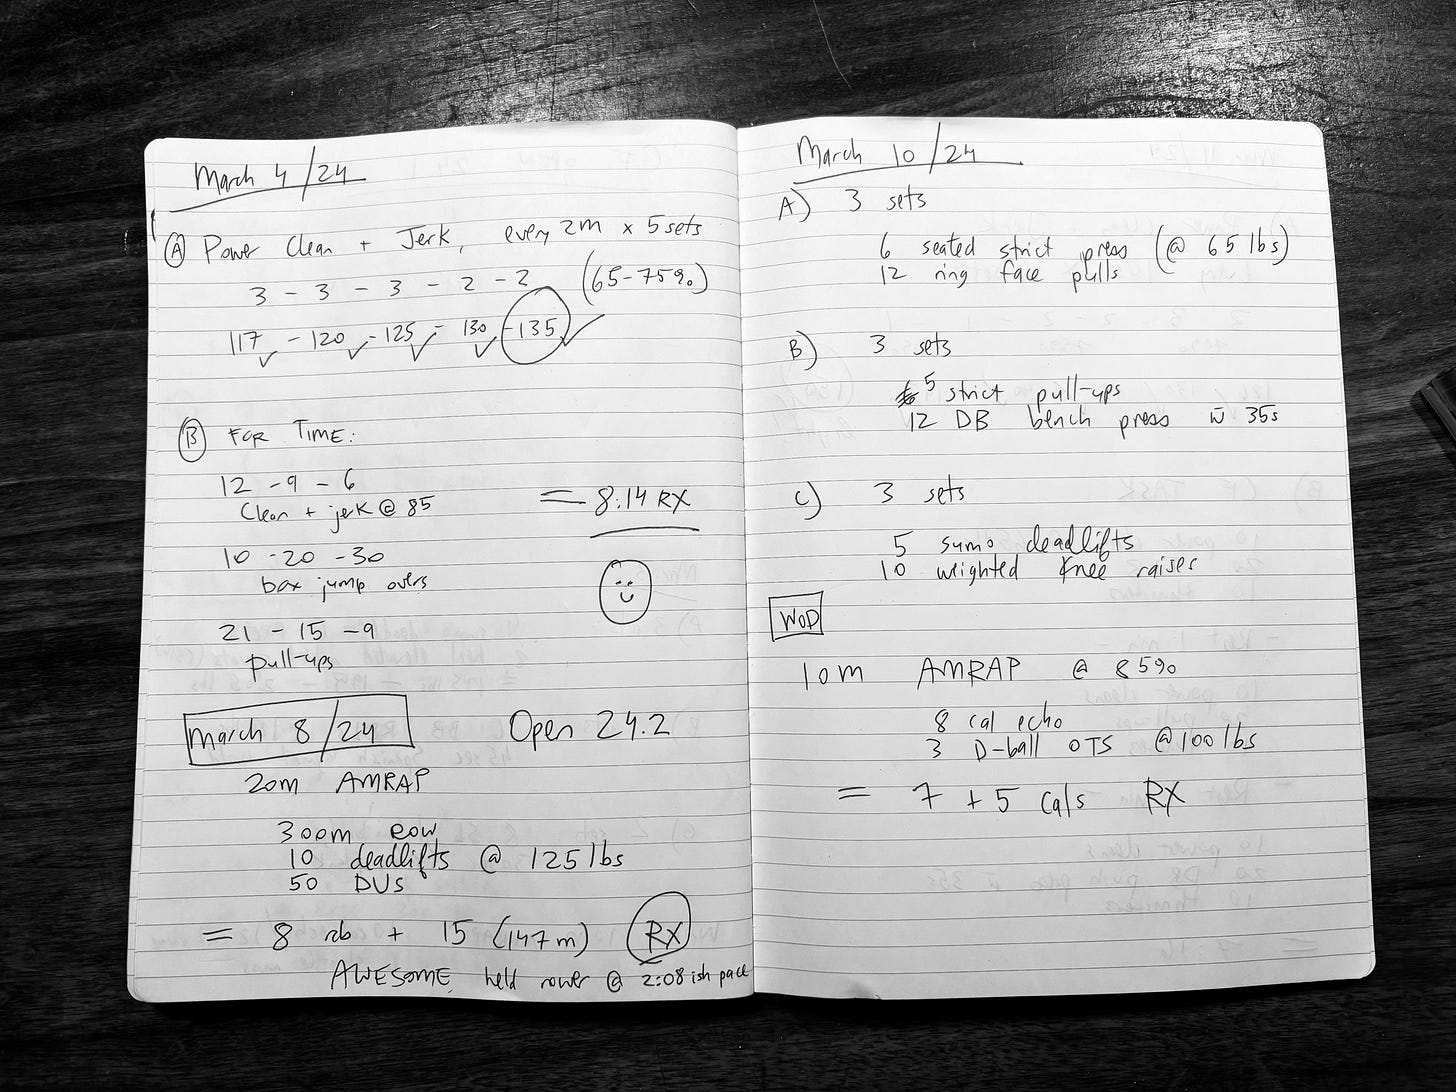 March 4/24
A Power Clean + Jerk, every 2m x 5 sets
3 - 3 - 3 - 2 - 2 (65-75%)
117 - 120 - 125 - 130 - 135
B FOR TIME:
12 - 9 - 6
Clean + jerk @ 85
= 8:14 RX
10 - 20 - 30
box jump overs
21 - 15 - 9
pull-ups
March 8/24 Open 24.2
20m AMRAP
300m row
10 deadlifts @ 125 lbs
50 DUs
= 8 rds + 15 (147m) RX
AWESOME, held rower @ 2:08 ish pace
March 10/24
A) 3 sets
6 seated strict press (@ 65 lbs)
12 ring face pulls
B) 3 sets
5 strict pull-ups
12 DB bench press w 35s
C) 3 sets
5 sumo deadlifts
10 weighted knee raises
WOD
10m AMRAP @ 85%
8 cal echo
3 D-ball OTS @ 100 lbs
= 7 + 5 cals RX